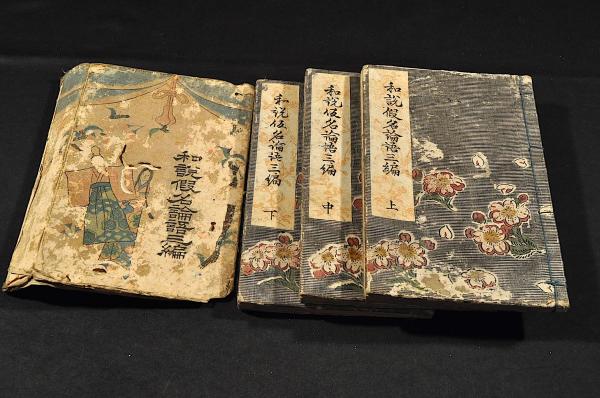 和説假名論語三編
和説仮名論語三編
下
和説仮名論語三編
中
和説假名論語三編
上